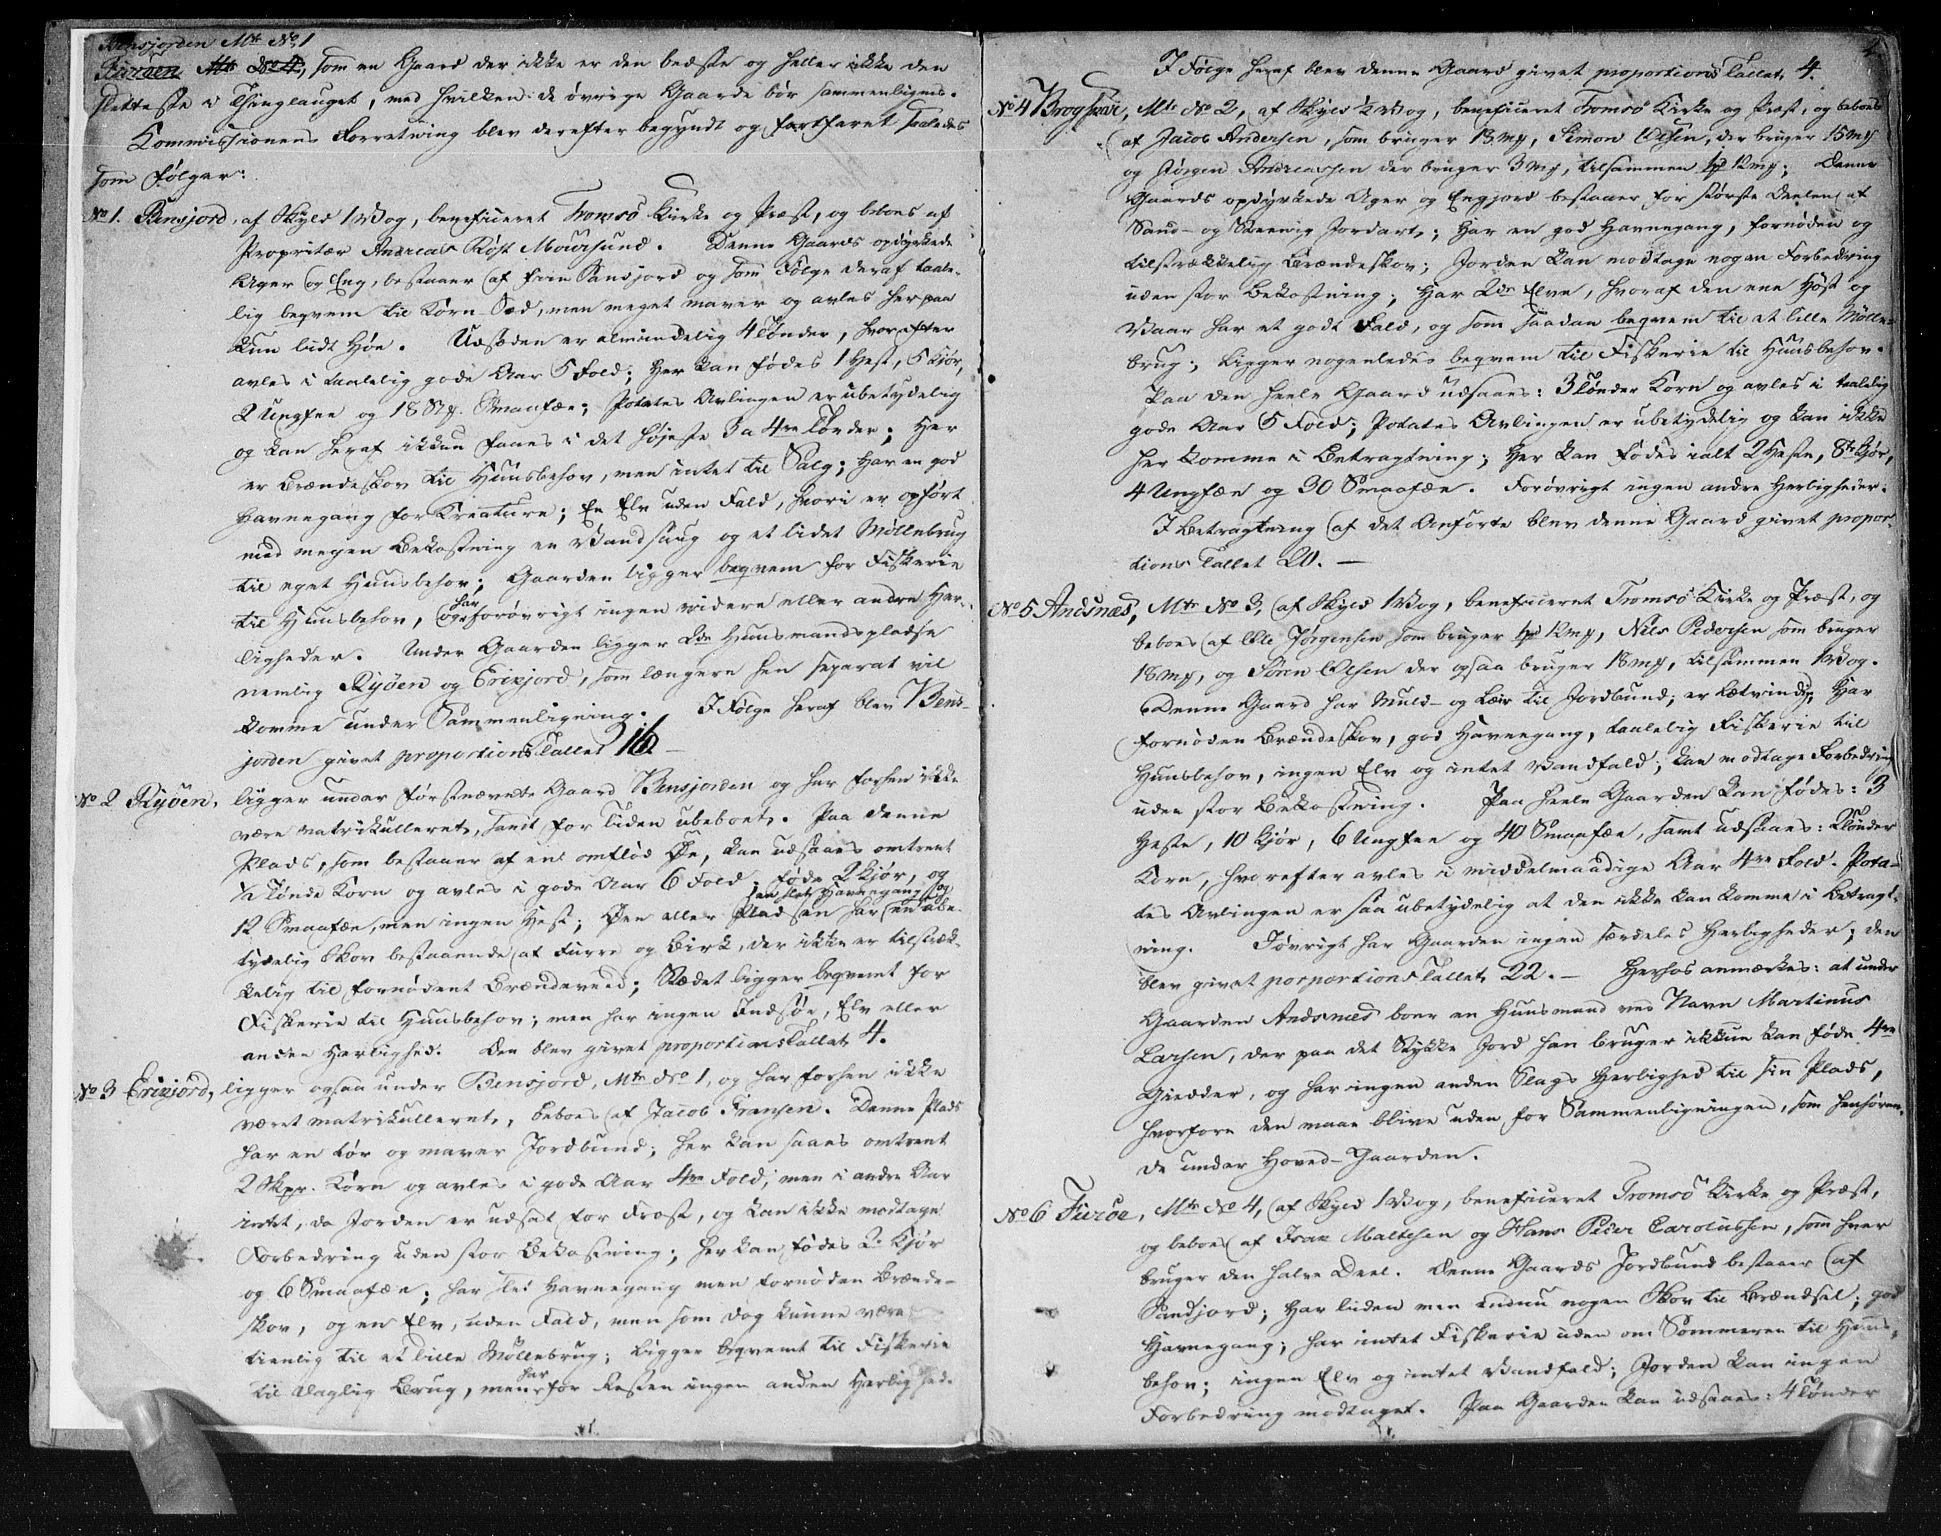 Bensjorden Mtr No 1
Furöen Mtr No 4, som en Gaard der ikke er den bedste og heller ikke den
sletteste i Thinglauget, med hvilken de øvrige Gaarde bør sammenlignes.
Kommissionens Forretning blev derefter begyndt og fortfaret saaledes
som følger:
No 1. Bensjord, af Skyld 1 Vog, beneficeret Tromsö Kirke og Præst, og beboes af
Propritær Andreas Röst Moursund. Denne Gaards opdyrkede
Ager og Eng, bestaaer af fiin Sandjord og som Følge deraf taale-
lig beqvem til Korn-Sæd, men meget maver og avles herpaa
kun lidt Høe. Udsæden er almindelig 4 Tønder, hvorefter
avles i taalelig gode Aar 5 Fold; Her kan födes 1 Hest, 5 Kiör,
2 Ungfee og 18 Stk. Smaafæe; Potates Avlingen er ubetydelig
og kan heraf ikkun faaes i det højeste 3 a 4re Tönder; Her
er Brændeskov til Huusbehov, men intet til Salg; Har en god
Havnegang for Kreature; En Elv uden Fald, hvori er opført
med megen Bekostning en Vandsaug og et lidet Møllebrug
til eget Huusbehov; Gaarden ligger beqvem for Fiskerie
til Huusbehov, og har forøvrigt ingen videre eller andre Her-
ligheder. Under Gaarden ligger 2de Huusmandspladse
nemlig Ryöen og Erikjord, som længere hen separat vil
komme under Sammenligning. I Følge heraf blev Bens-
jorden givet proportions Tallet 16. —
No 2 Ryöen, ligger under förstnævnte Gaard Bensjorden og har forhen ikke
være matrikulleret, samt for Tiden ubeboet. Paa denne
Plads, som bestaaer af en omflöd Øe, kan udsaaes omtrent
½ Tønde Korn og avles i gode Aar 6 Fold; föde 2 Kjör, og
12 Smaafæe, men ingen Hest; Øen eller Pladsen har een slet Havnegang og en ube-
tydelig Skov bestaaende af Furre og Birk, der ikke er tilstræk-
kelig til fornødent Brændeveed; Stædet ligger beqvemt for
Fiskerie til Huusbehov; men har ingen Indsøe, Elv eller
anden Herlighed. Den blev givet proportions Tallet 4.
No 3 Erikjord, ligger ogsaa under Bensjord, Mtr No 1, og har forhen ikke
været matrikulleret, beboes af Jacob Fransen. Denne Plads
har en tør og maver Jordbund; her kan saaes omtrent
2 Skpr. Korn og avles i gode Aar 4re Fold, men i andre Aar
intet, da Jorden er udsat for Frost, og kan ikke modtage
Forbedring uden stor Bekostning; her kan födes 2 Kjör
og 6 Smaafæe; har slet Havnegang men fornøden Brænde-
skov, og en Elv, uden Fald, men som dog kunne være
tienlig til et lille Møllebrug; ligger beqvemt til Fiskerie
til daglig Brug, men har for Resten ingen anden Herlighed.
I Følge heraf blev denne Gaard givet proportions Tallet 4.
No 4 Brogskar, Mtr No 2, af Skyld ½ Vog, beneficeret Tromsö Kirke og Præst, og beboes
af Jacob Andersen, som bruger 18 mk, Simon Olsen, der bruger 15 mk
og Jörgen Andreassen der bruger 3 mk, tilsammen 12 mk; Denne
Gaards opdyrkede Ager og Engjord bestaaer for største Deelen af
Sand- og Steenig Jordart; Har en god Havnegang, fornøden og
tilstrækkelig Brændeskov; Jorden kan modtage nogen Forbedring
uden stor Bekostning; Har 2de Elve, hvoraf den ene Höst og
Vaar har et godt Fald, og som saadan beqvem til et lille Mölle-
brug; Ligger nogenledes beqvem til Fiskerie til Huusbehov.
Paa den heele Gaard udsaaes: 3 Tönder Korn og avles i taalelig
gode Aar 5 Fold; Potates Avlingen er ubetydelig og kan ikke
her komme i Betragtning; Her kan födes ialt 2 Heste, 8te Kjör,
4 Ungfæe og 30 Smaafæe. Forøvrigt ingen andre Herligheder.
I Betragtning af det Anførte blev denne Gaard givet propor-
tions Tallet 20. —
No 5 Andsnæs, Mtr No 3, af Skyld 1 Vog, beneficeret Tromsö Kirke og Præst, og
beboes af Ole Jørgensen som bruger 12 mk, Nils Pedersen som bruger
18 mk, og Sören Olsen der ogsaa bruger 18 mk, tilsammen 1 Vog.
Denne Gaard har Muld- og Leir til Jordbund; er letvindig, Har
fornøden Brændeskov, god Havnegang, taalelig Fiskerie til
Huusbehov, ingen Elv og intet Vandfald; kan modtage Forbedring
uden stor Bekostning. Paa heele Gaarden kan födes: 3
Heste, 10 Kjör, 6 Ungfee og 40 Smaafæe, samt udsaaes: 2 Tönder
Korn, hvorefter avles i middelmaadige Aar 4re Fold. Pota-
tes Avlingen er saa ubetydelig at den ikke kan komme i Betragt-
ning. Iøvrigt har Gaarden ingen særdeles Herligheder; den
blev givet porportions Tallet 22. — Herhos anmærkes: at under
Gaarden Andsnæs boer en Huusmand ved Navn Martinus
Larsen, der paa det Stykke Jord han bruger ikkun kan föde 4re
Giedder, og har ingen anden Slags Herlighed til sin Plads,
hvorfore den maae blive uden for Sammenligningen, som henhøren-
de under Hoved-Gaarden.
No 6 Furöe, Mtr No 4, af Skyld 1 Vog, beneficeret Tromsö Kirke og Præst,
og beboes af Isak Maltesen og Hans Peter Caroliussen, som hver
bruger den halve Deel. Denne Gaards Jordbund bestaaer af
Sandjord; Har liden men endnu nogen Skov til Brændsel; god
Havnegang; har intet Fiskerie uden om Sommeren til Huus-
behov; ingen Elv og intet Vandfald; Jorden kan ingen
Forbedring modtaget. Paa Gaarden kan udsaaes: 4 Tönder